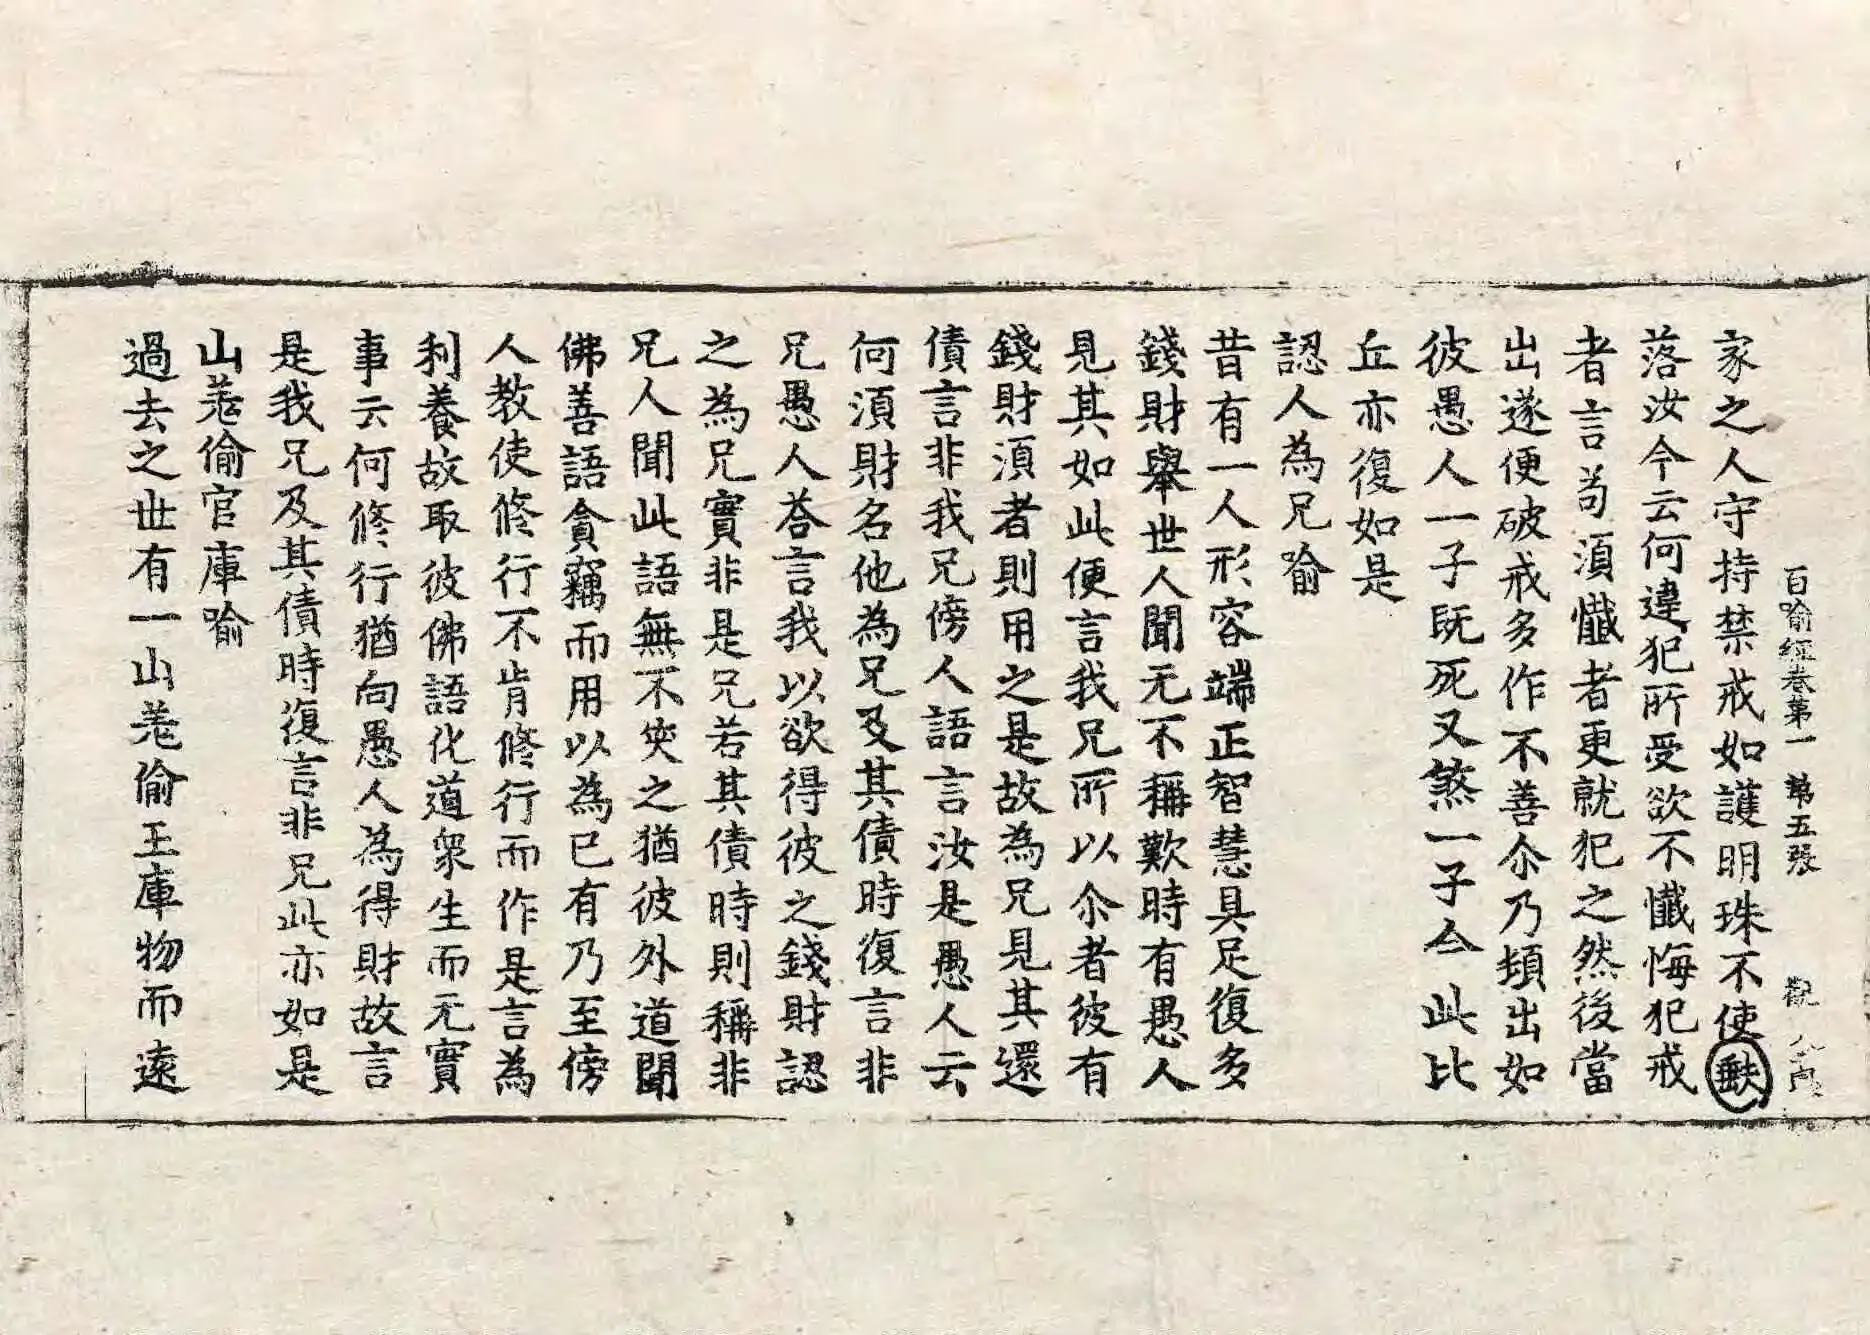 百喻經卷第一 第五張
家之人守持禁戒如護明珠不使
落汝今云何違犯所受欲不懺悔犯戒
者言苟湏懺者更就犯之然後當
出遂便破戒多作不善尒乃頓出如
彼愚人一子既死又煞一子今此比
丘亦復如是
認人為兄喻
昔有一人形容端正智慧具足復多
錢財舉世人聞无不稱歎時有愚人
見其如此便言我兄所以尒者彼有
錢財湏者則用之是故為兄見其還
債言非我兄傍人語言汝是愚人云
何湏財名他為兄及其債時復言非
兄愚人荅言我以欲得彼之錢財認
之為兄實非是兄若其債時則稱非
兄人聞此語無不笑之猶彼外道聞
佛善語貪竊而用以為已有乃至傍
人教使修行不肯修行而作是言為
利養故取彼佛語化道衆生而无實
事云何修行猶向愚人為得財故言
是我兄及其債時復言非兄此亦如是
山羌偷官庫喻
過去之世有一山羌偷王庫物而遠